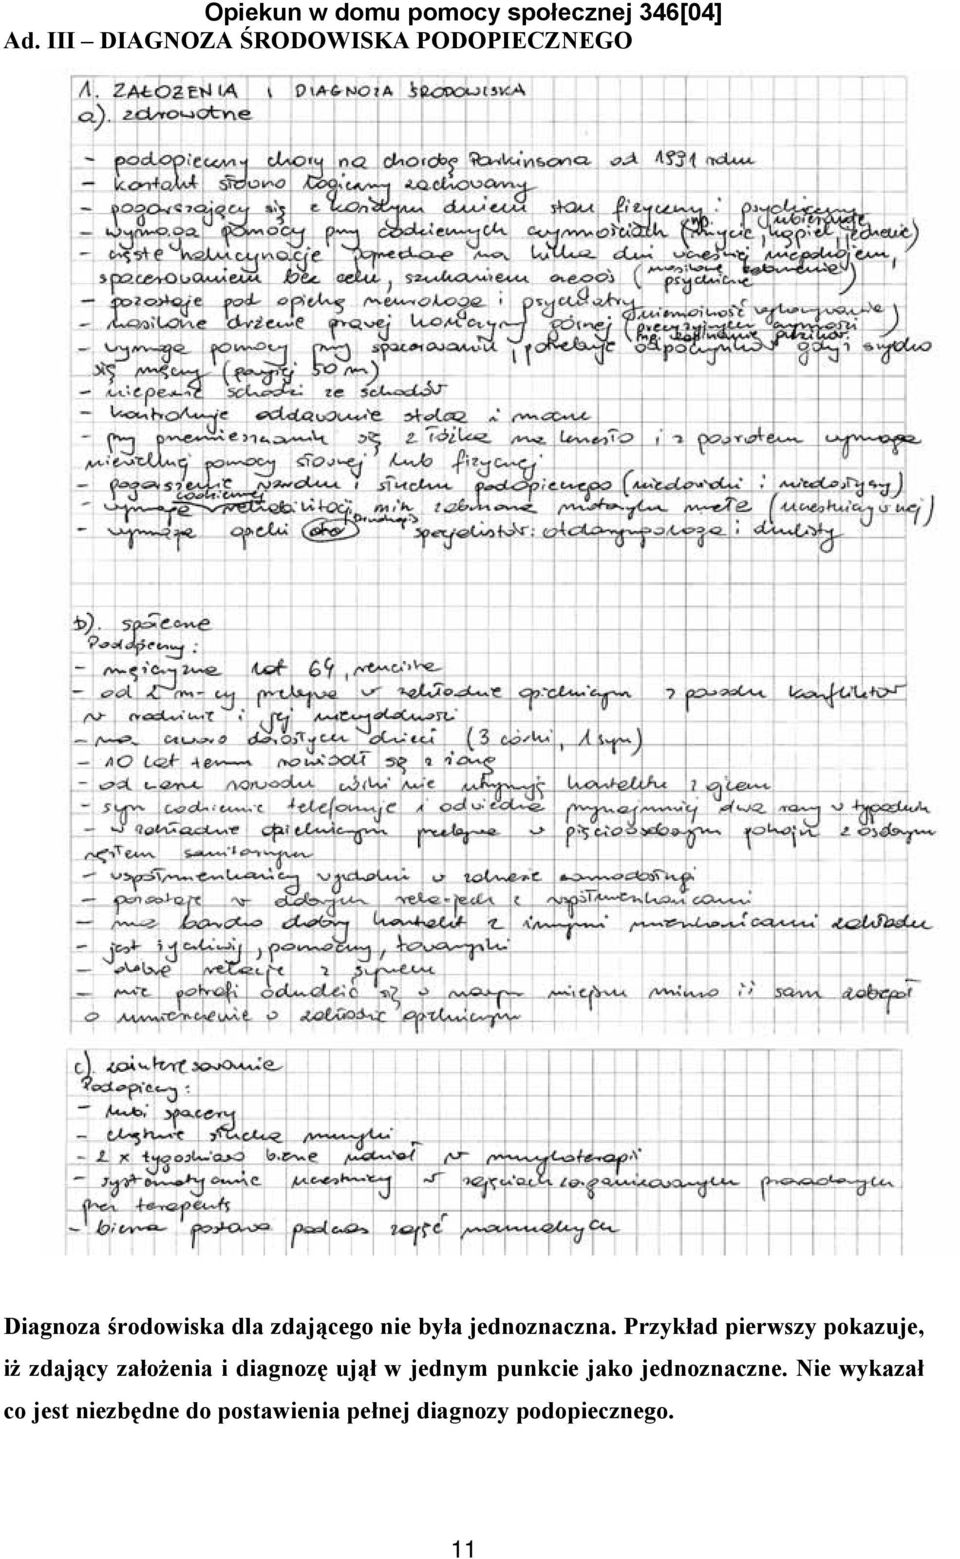 Opiekun w domu pomocy społecznej 346[04]
Ad. III – DIAGNOZA ŚRODOWISKA PODOPIECZNEGO
1. ZAŁOŻENIA i DIAGNOZA ŚRODOWISKA
a). zdrowotne
- podopieczny chory na chorobę Parkinsona od 1991 roku
- kontakt słowno logiczny zachowany
- pogarszający się z każdym dniem stan fizyczny i psychiczny
- wymaga pomocy przy codziennych czynnościach (np. mycie, kąpiel, ubieranie, jedzenie)
- częste halucynacje poprzedzone na kilka dni wcześniej niepokojem,
spacerowaniem bez celu, szukaniem czegoś (nasilone zaburzenie psychiczne)
- pozostaje pod opieką neurologa i psychiatry
- nasilone drżenie prawej kończyny górnej (niemożność wykonywania precyzyjnych czynności np. zapinanie guzików)
- wymaga pomocy przy spacerowaniu, potrzebuje odpoczynków gdyż szybko
się męczy (powyżej 50 m)
- niepewnie schodzi ze schodów
- kontroluje oddawanie stolca i moczu
- przy przemieszczaniu się z łóżka na krzesło i z powrotem wymaga
niewielkiej pomocy słownej lub fizycznej
- pogorszenie wzroku i słuchu podopiecznego (niedowidzi i niedosłyszy)
- wymaga codziennej rehabilitacji min. zabiegane motoryka mała
- wymaga opieki specjalistów: otolaryngologa i okulisty
b). społeczne
Podopieczny:
- mężczyzna lat 64, rencista
- od 2 m-cy przebywa w zakładzie opiekuńczym z powodu konfliktów
w rodzinie i jej niewydolności
- ma czworo dorosłych dzieci (3 córki, 1 syn)
- 10 lat temu rozwiódł się z żoną
- od czasu rozwodu córki nie utrzymują kontaktu z ojcem
- syn codziennie telefonuje i odwiedza przynajmniej dwa razy w tygodniu
- w zakładzie opiekuńczym przebywa w pięcioosobowym pokoju z osobnym
węzłem sanitarnym
- współmieszkańcy wydolni w zakresie samoobsługi
- pozostaje w dobrych relacjach z współmieszkańcami
- ma bardzo dobry kontakt z innymi mieszkańcami zakładu
- jest życzliwy, pomocny, towarzyski
- dobre relacje z synem
- nie potrafi odnaleźć się w nowym miejscu mimo iż sam zabiegał
o umieszczenie w zakładzie opiekuńczym
c). zainteresowanie
Podopieczny:
- lubi spacery
- chętnie słucha muzyki
- 2 x tygodniowo bierze udział w muzykoterapii
- systematycznie uczestniczy w zajęciach zorganizowanych prowadzonych
przez terapeutę
- bierna postawa podczas zajęć manualnych
Diagnoza środowiska dla zdającego nie była jednoznaczna. Przykład pierwszy pokazuje,
iż zdający założenia i diagnozę ujął w jednym punkcie jako jednoznaczne. Nie wykazał
co jest niezbędne do postawienia pełnej diagnozy podopiecznego.
11